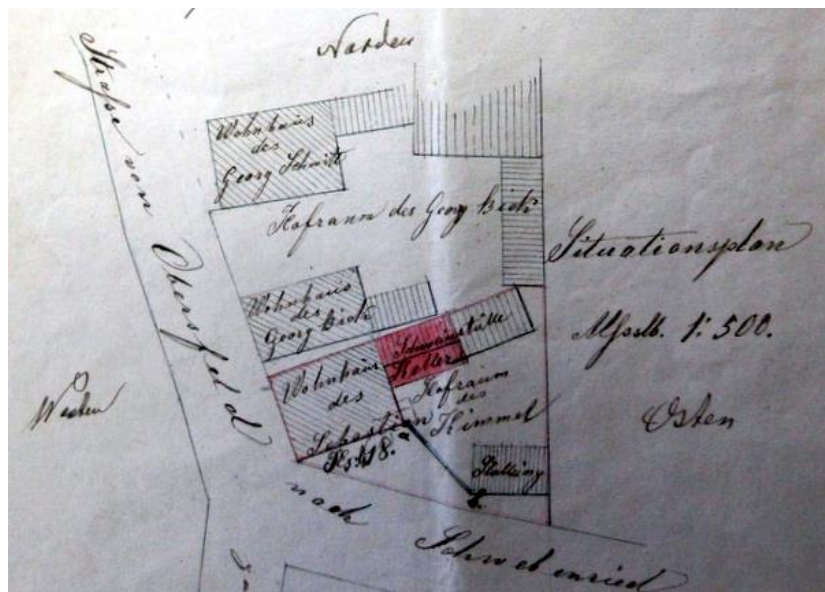 Norden
Straße von Obersfeld nach Schwebenried
Wohnhaus
des
Georg Schmitt
Hofraum des Georg
Situationsplan
Mssstb. 1:500.
Wohnhaus
des
Georg
Schweinställe
Keller
Wohnhaus
des
Sebastian
Hs. № 18.
Hofraum
des
Himmel
a
Stallung
b.
Westen
Osten